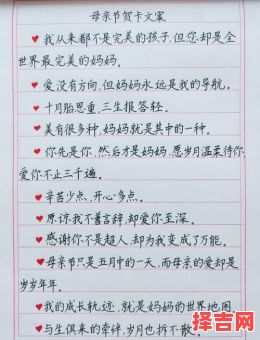 母亲节贺卡文案
♥我从来都不是完美的孩子,但您却是全
世界最完美的妈妈.
♥爱没有方向,但妈妈永远是我的导航.
♥十月胎恩重,三生报答轻.
♥美有很多种,妈妈就是其中的一种.
♥你先是你,然后才是妈妈,愿岁月温柔待你,
爱你不止三千遍.
♥辛苦少点,开心多点.
♥原谅我不善言辞,却爱你至深.
♥感谢你不是超人,却为我变成了万能.
♥母亲节只是五月中的一天,而母亲的爱却是
岁岁年年.
♥我的成长轨迹,就是妈妈的世界地图.
♥与生俱来的牵绊,岁月也拆不散.
择吉网